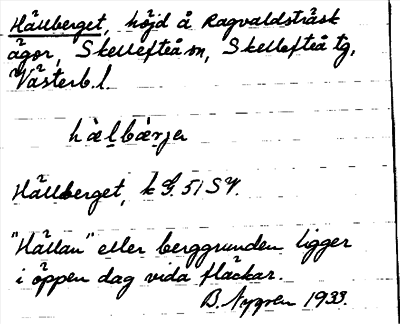 Hällberget, höjd å Ragvaldsträsk
ägor, Skellefteå sn, Skellefteå tg,
Västerb. l.
hèḷbæ̀rjer
Hällberget, k G. 51 SV.
"Hällan" eller berggrunden ligger
i öppen dag vida fläckar.
B. Nygren 1933.